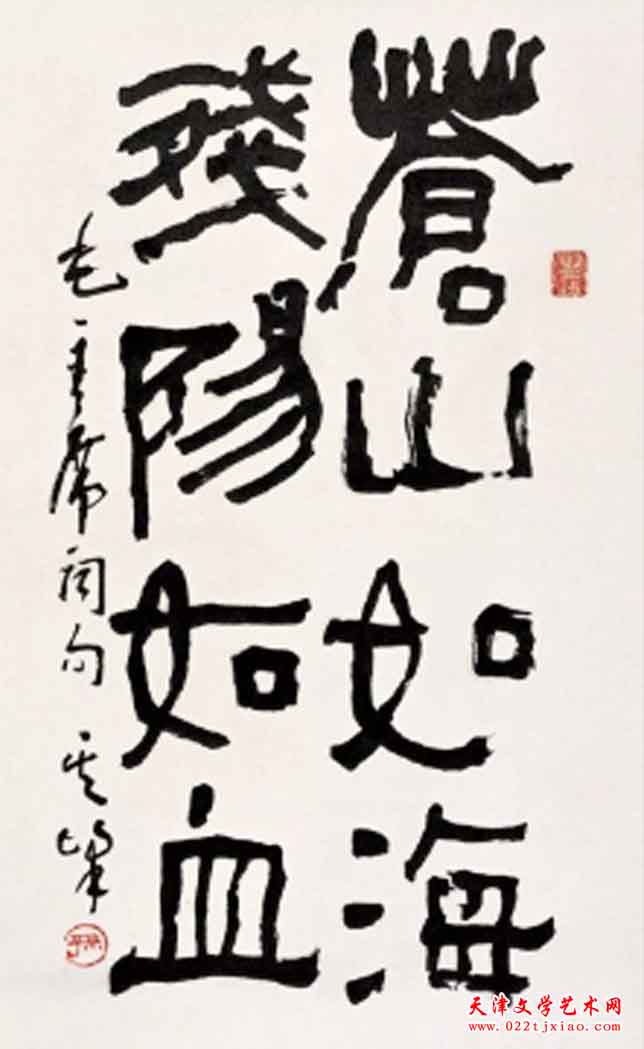 蒼山如海
殘陽如血
毛主席詞句 其峯
天津文学艺术网
www.022tjxiao.com